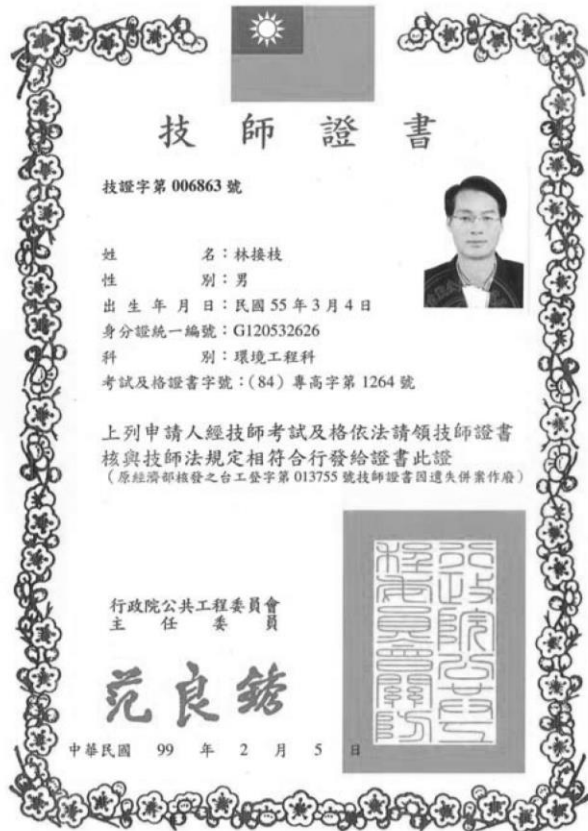 技師證書
技證字第 006863 號
姓名：林接枝
性別：男
出生年月日：民國 55 年 3 月 4 日
身分證統一編號：G120532626
科別：環境工程科
考試及格證書字號：(84) 專高字第 1264 號
上列申請人經技師考試及格依法請領技師證書
核與技師法規定相符合行發給證書此證
（原經濟部核發之台工登字第 013755 號技師證書因遺失併案作廢）
行政院公共工程委員會
主任委員
范良銹
行政院公共工程委員會關防
中華民國 99 年 2 月 5 日